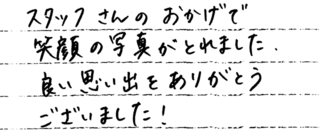 スタッフさんのおかげで
笑顔の写真がとれました.
良い思い出をありがとう
ございました!